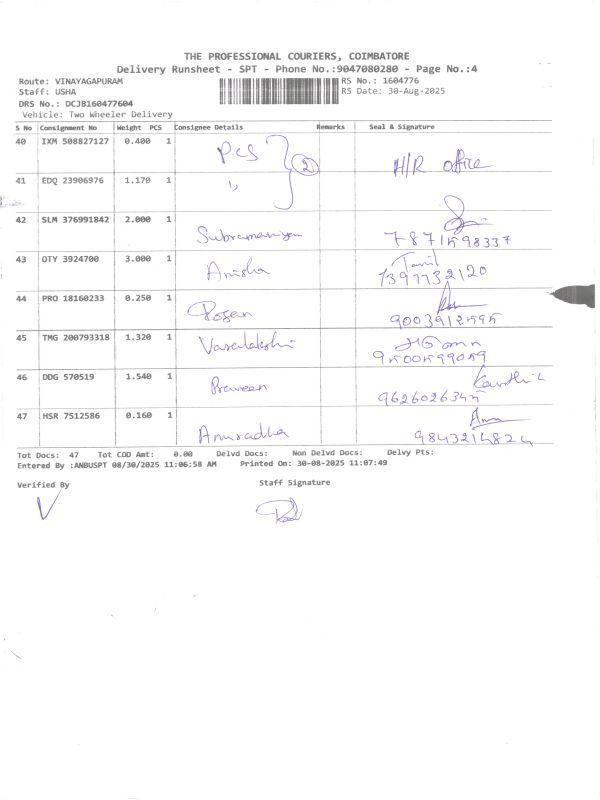 THE PROFESSIONAL COURIERS, COIMBATORE
Delivery Runsheet - SPT - Phone No.:9047080280 - Page No.:4
Route: VINAYAGAPURAM RS No.: 1604776
Staff: USHA RS Date: 30-Aug-2025
DRS No.: DCJB160477604
Vehicle: Two Wheeler Delivery
S No Consignment No Weight PCS Consignee Details Remarks Seal & Signature
40 IXM 508827127 0.400 1 PCS 2 H/R office
41 EDQ 23906976 1.170 1 "
42 SLM 376991842 2.000 1 Subramaniyam 7871598337
43 OTY 3924700 3.000 1 Anisha Tamil 7397732120
44 PRO 18160233 0.250 1 Rosen 9003912595
45 TMG 200793318 1.320 1 Varalakshi 9500599059
46 DDG 570519 1.540 1 Praveen Karthik 9626026345
47 HSR 7512586 0.160 1 Anuradha Anu 9843214824
Tot Docs: 47 Tot COD Amt: 0.00 Delvd Docs: Non Delvd Docs: Delvy Pts:
Entered By :ANBUSPT 08/30/2025 11:06:58 AM Printed On: 30-08-2025 11:07:49
Verified By Staff Signature